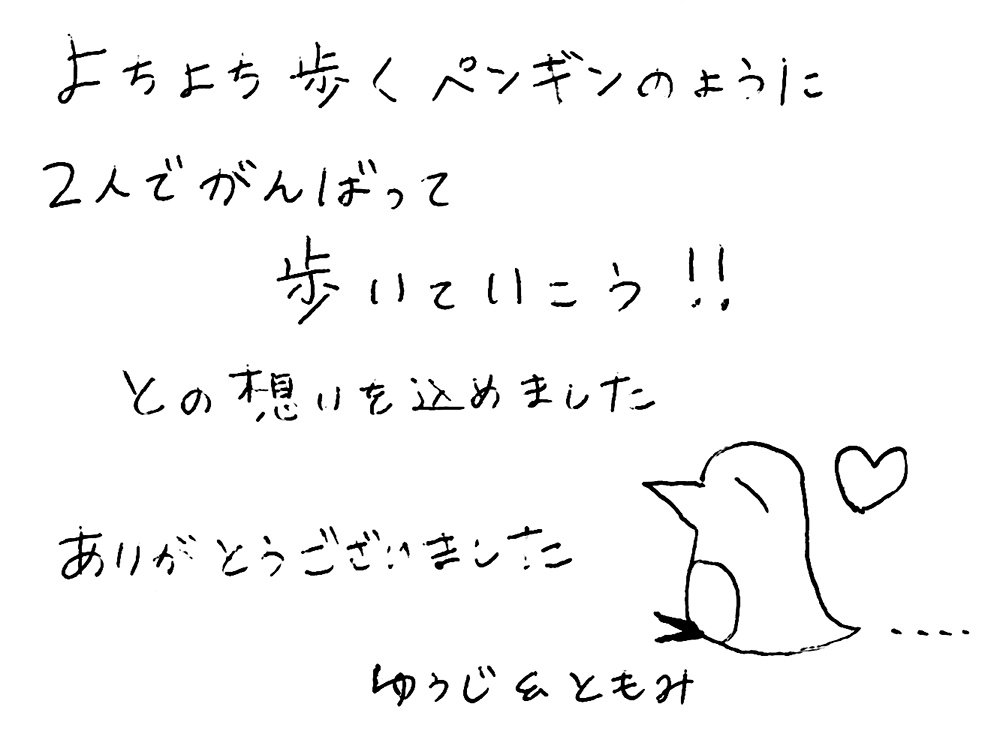 よちよち歩くペンギンのように
2人でがんばって
歩いていこう!!
との想いを込めました
ありがとうございました
ゆうじ&ともみ